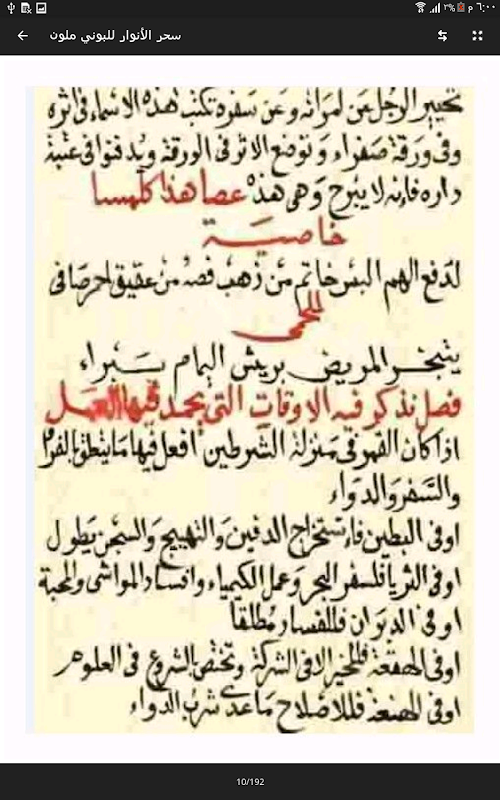 م ٦:٠٠
٣٪
سحر الأنوار للبوني ملون
تحيير الرجل عن امراته وعن سفره تكتب هذه الاسماء فى اثره
وفى ورقة صفراء وتوضع الاثر فى الورقة ويدفنوا فى عتبة
داره فإنه لا يبرح وهى هذه عصا هذا كلهسا
خاصية
لدفع الهم البس خاتم من ذهب فصه من عقيق احمر صافى
للحمى
يتبخر المريض بريش اليمام يبراء
فصل نذكر فيه الاوقات التى يحمد فيها العمل
اذا كان القمر فى منزلة الشرطين افعل فيها ما يتعلق بالفراق
والسفر والدواء
اوفى البطين فاستخراج الدفين والتهييج والسجن يطول
اوفى الثريا فلسفر البحر وعمل الكيمياء وافساد المواشى والمحبة
اوفى الدبران فللفساد مطلقا
اوفى الهقعة فللخير الا فى الشركة وتختص بالشروع فى العلوم
اوفى الهنعة فللاصلاح ما عدى شرب الدواء
10/192